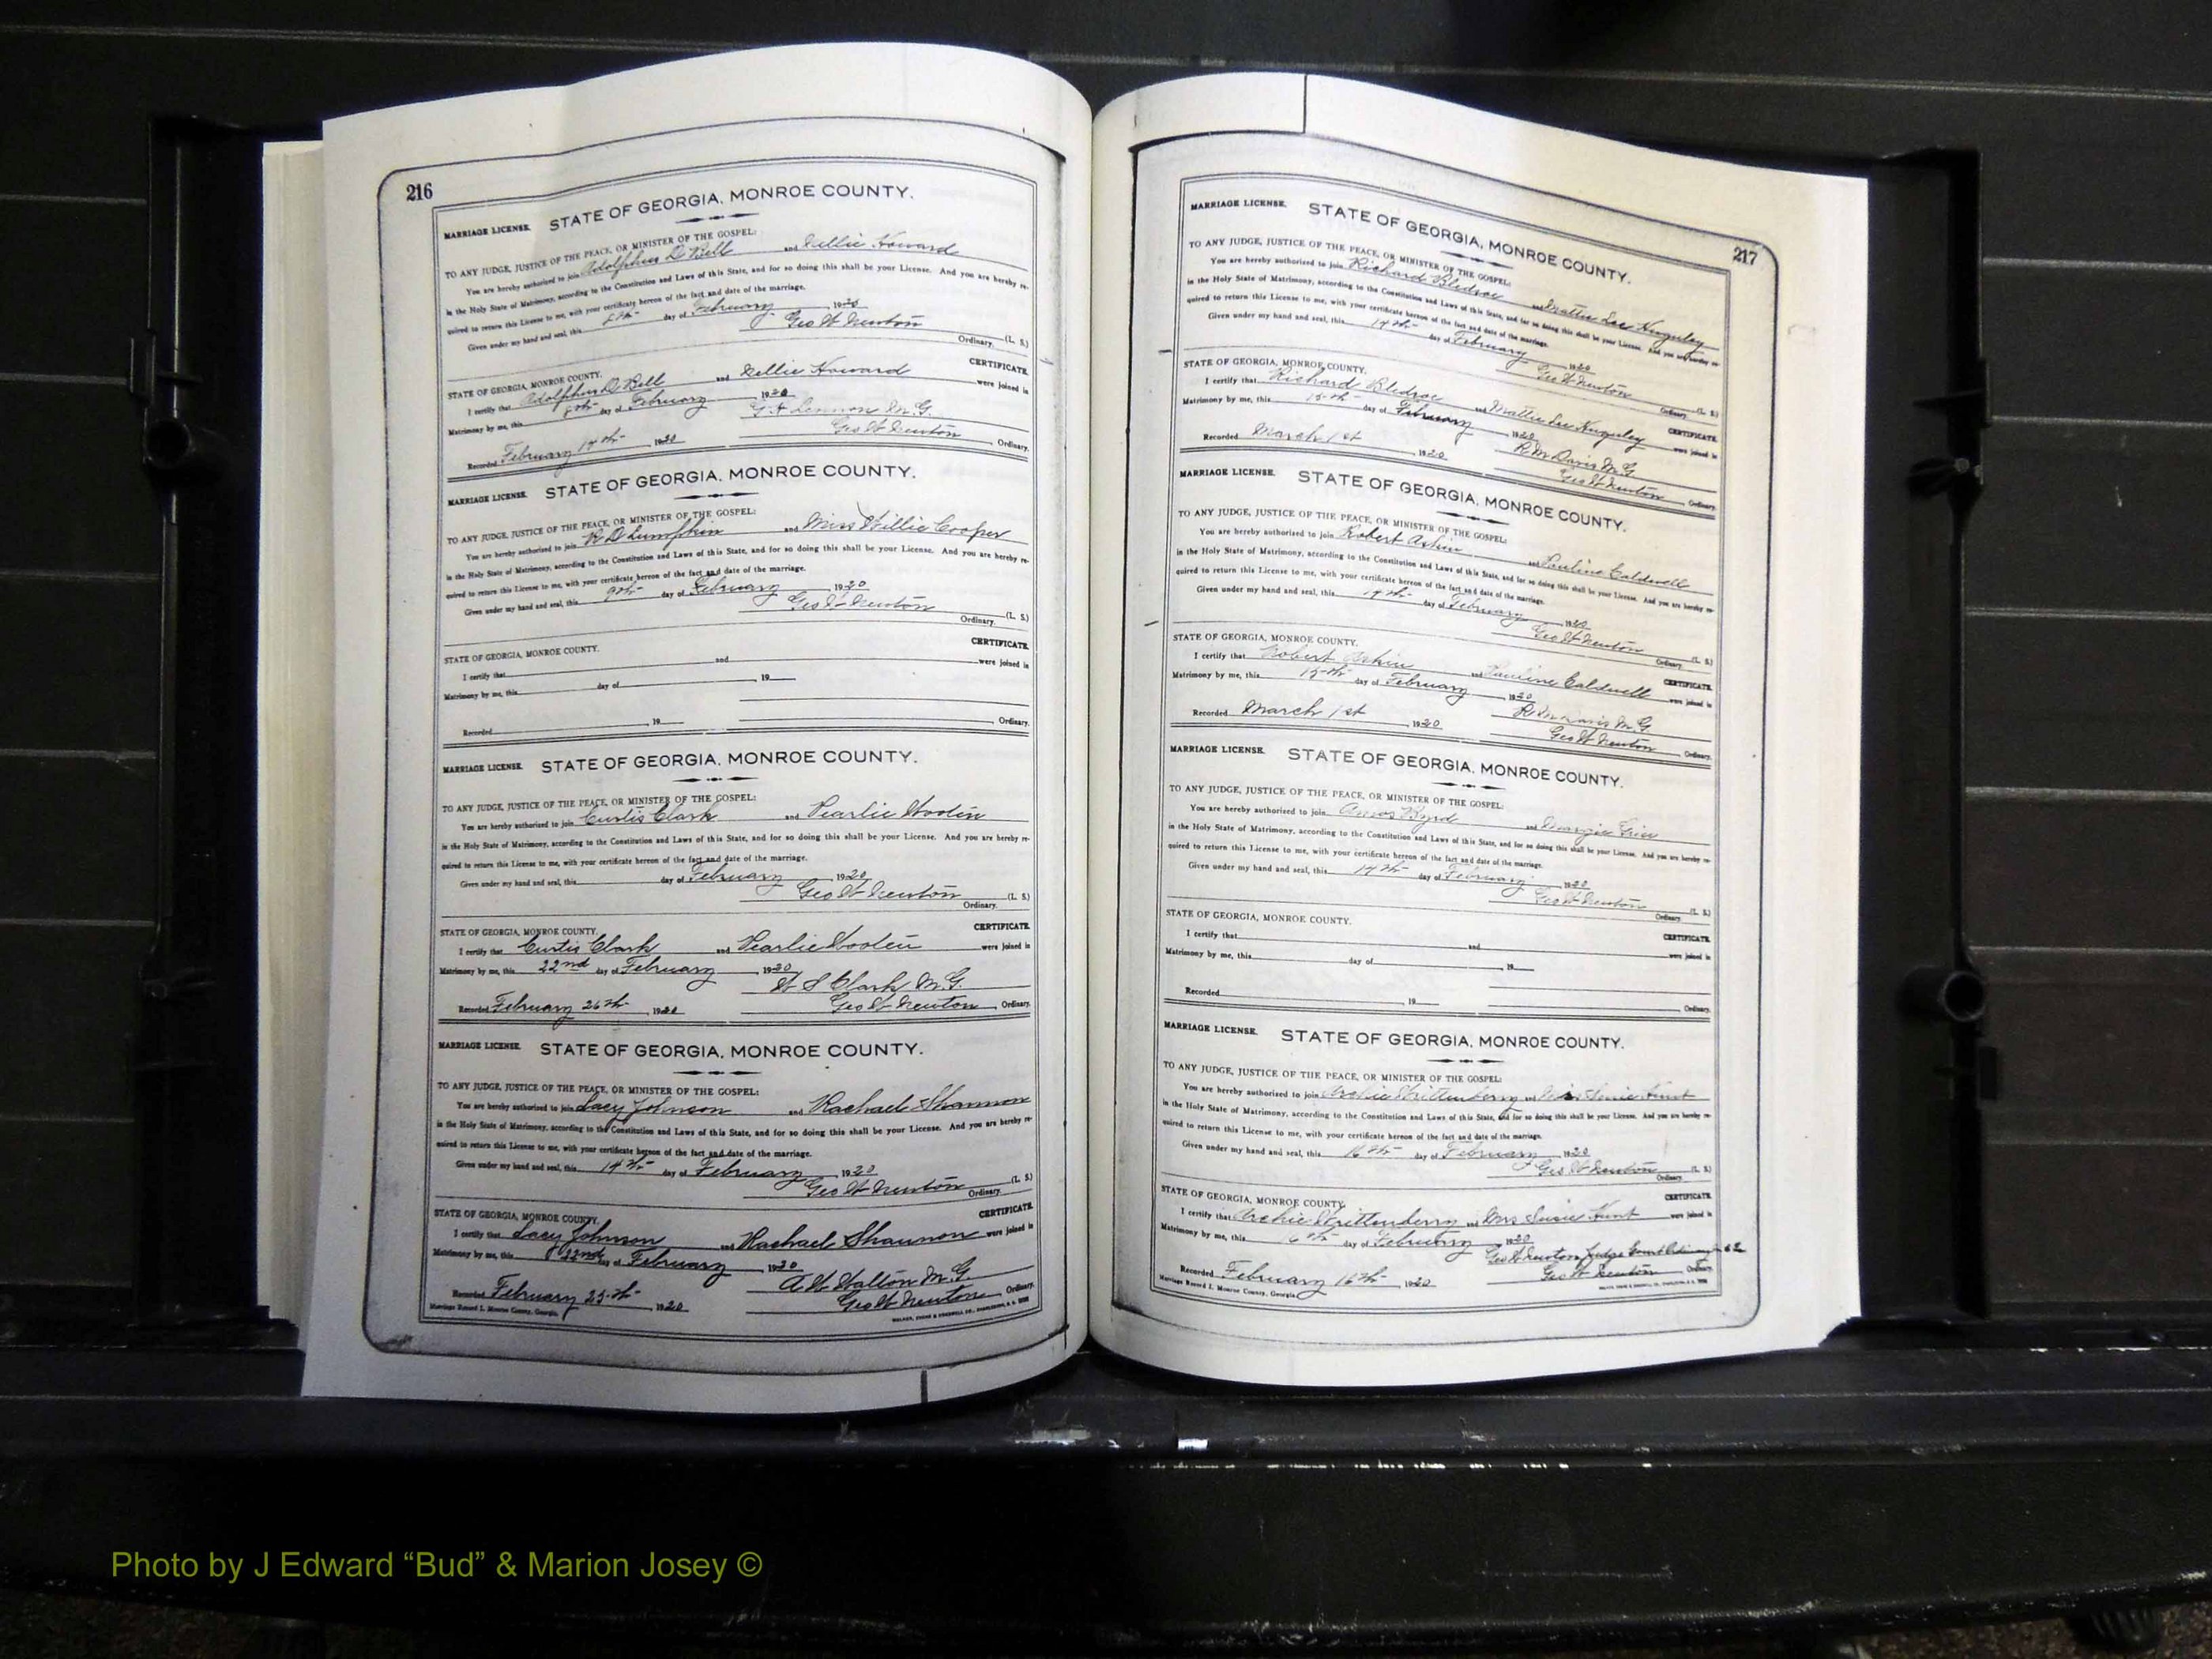 216
MARRIAGE LICENSE. STATE OF GEORGIA, MONROE COUNTY.
TO ANY JUDGE, JUSTICE OF THE PEACE, OR MINISTER OF THE GOSPEL:
You are hereby authorized to join Adolphus D Bell and Dellie Howard
in the Holy State of Matrimony, according to the Constitution and Laws of this State, and for so doing this shall be your License. And you are hereby re-
quired to return this License to me, with your certificate hereon of the fact and date of the marriage.
Given under my hand and seal, this day of February 1920
Geo W Newton (L. S.)
Ordinary.
STATE OF GEORGIA, MONROE COUNTY. CERTIFICATE.
I certify that Adolphus D Bell and Dellie Howard were joined in
Matrimony by me, this 8th day of February 1920
G A Lennon M.G.
Recorded February 14th, 1920 Geo W Newton Ordinary.
MARRIAGE LICENSE. STATE OF GEORGIA, MONROE COUNTY.
TO ANY JUDGE, JUSTICE OF THE PEACE, OR MINISTER OF THE GOSPEL:
You are hereby authorized to join R D Lumpkin and Miss Willie Cooper
in the Holy State of Matrimony, according to the Constitution and Laws of this State, and for so doing this shall be your License. And you are hereby re-
quired to return this License to me, with your certificate hereon of the fact and date of the marriage.
Given under my hand and seal, this 9th day of February, 1920
Geo W Newton (L. S.)
Ordinary.
STATE OF GEORGIA, MONROE COUNTY. CERTIFICATE.
I certify that and were joined in
Matrimony by me, this day of , 19
Recorded , 19 Ordinary.
MARRIAGE LICENSE. STATE OF GEORGIA, MONROE COUNTY.
TO ANY JUDGE, JUSTICE OF THE PEACE, OR MINISTER OF THE GOSPEL:
You are hereby authorized to join Curtis Clark and Pearlie Wooten
in the Holy State of Matrimony, according to the Constitution and Laws of this State, and for so doing this shall be your License. And you are hereby re-
quired to return this License to me, with your certificate hereon of the fact and date of the marriage.
Given under my hand and seal, this day of February, 1920
Geo W Newton (L. S.)
Ordinary.
STATE OF GEORGIA, MONROE COUNTY. CERTIFICATE.
I certify that Curtis Clark and Pearlie Wooten were joined in
Matrimony by me, this 22nd day of February, 1920
W S Clark M.G.
Recorded February 26th, 1920 Geo W Newton Ordinary.
MARRIAGE LICENSE. STATE OF GEORGIA, MONROE COUNTY.
TO ANY JUDGE, JUSTICE OF THE PEACE, OR MINISTER OF THE GOSPEL:
You are hereby authorized to join Lacy Johnson and Rachael Shannon
in the Holy State of Matrimony, according to the Constitution and Laws of this State, and for so doing this shall be your License. And you are hereby re-
quired to return this License to me, with your certificate hereon of the fact and date of the marriage.
Given under my hand and seal, this 14th day of February, 1920
Geo W Newton (L. S.)
Ordinary.
STATE OF GEORGIA, MONROE COUNTY. CERTIFICATE.
I certify that Lacy Johnson and Rachael Shannon were joined in
Matrimony by me, this 22nd day of February, 1920
A W Walton M.G.
Recorded February 25th, 1920 Geo W Newton Ordinary.
Marriage Record I, Monroe County, Georgia.
217
MARRIAGE LICENSE. STATE OF GEORGIA, MONROE COUNTY.
TO ANY JUDGE, JUSTICE OF THE PEACE, OR MINISTER OF THE GOSPEL:
You are hereby authorized to join Richard Bledsoe and Mattie Lee
in the Holy State of Matrimony, according to the Constitution and Laws of this State, and for so doing this shall be your License. And you are hereby re-
quired to return this License to me, with your certificate hereon of the fact and date of the marriage.
Given under my hand and seal, this 14th day of February 1920
Geo W Newton (L. S.)
Ordinary.
STATE OF GEORGIA, MONROE COUNTY. CERTIFICATE.
I certify that Richard Bledsoe and Mattie Lee were joined in
Matrimony by me, this 15th day of February, 1920
R M Davis M.G
Recorded March 1st 1920 Geo W Newton Ordinary.
MARRIAGE LICENSE. STATE OF GEORGIA, MONROE COUNTY.
TO ANY JUDGE, JUSTICE OF THE PEACE, OR MINISTER OF THE GOSPEL:
You are hereby authorized to join Robert Askin and Pauline Caldwell
in the Holy State of Matrimony, according to the Constitution and Laws of this State, and for so doing this shall be your License. And you are hereby re-
quired to return this License to me, with your certificate hereon of the fact and date of the marriage.
Given under my hand and seal, this 14th day of February, 1920
Geo W Newton (L. S.)
Ordinary.
STATE OF GEORGIA, MONROE COUNTY. CERTIFICATE.
I certify that Robert Askin and Pauline Caldwell were joined in
Matrimony by me, this 15th day of February, 1920
R M Davis M.G
Recorded March 1st, 1920 Geo W Newton Ordinary.
MARRIAGE LICENSE. STATE OF GEORGIA, MONROE COUNTY.
TO ANY JUDGE, JUSTICE OF THE PEACE, OR MINISTER OF THE GOSPEL:
You are hereby authorized to join Amos Byrd and
in the Holy State of Matrimony, according to the Constitution and Laws of this State, and for so doing this shall be your License. And you are hereby re-
quired to return this License to me, with your certificate hereon of the fact and date of the marriage.
Given under my hand and seal, this 14th day of February, 1920
Geo W Newton (L. S.)
Ordinary.
STATE OF GEORGIA, MONROE COUNTY. CERTIFICATE.
I certify that and were joined in
Matrimony by me, this day of , 19
Recorded 19 Ordinary.
MARRIAGE LICENSE. STATE OF GEORGIA, MONROE COUNTY.
TO ANY JUDGE, JUSTICE OF THE PEACE, OR MINISTER OF THE GOSPEL:
You are hereby authorized to join Archie Writtenberry and Susie Hunt
in the Holy State of Matrimony, according to the Constitution and Laws of this State, and for so doing this shall be your License. And you are hereby re-
quired to return this License to me, with your certificate hereon of the fact and date of the marriage.
Given under my hand and seal, this 16th day of February, 1920
Geo W Newton (L. S.)
Ordinary.
STATE OF GEORGIA, MONROE COUNTY. CERTIFICATE.
I certify that Archie Writtenberry and Mrs Susie Hunt were joined in
Matrimony by me, this 16th day of February, 1920
Geo W Newton Judge Court Ordinary
Recorded February 16th, 1920 Geo W Newton Ordinary.
Marriage Record I, Monroe County, Georgia
Photo by J Edward “Bud” & Marion Josey ©